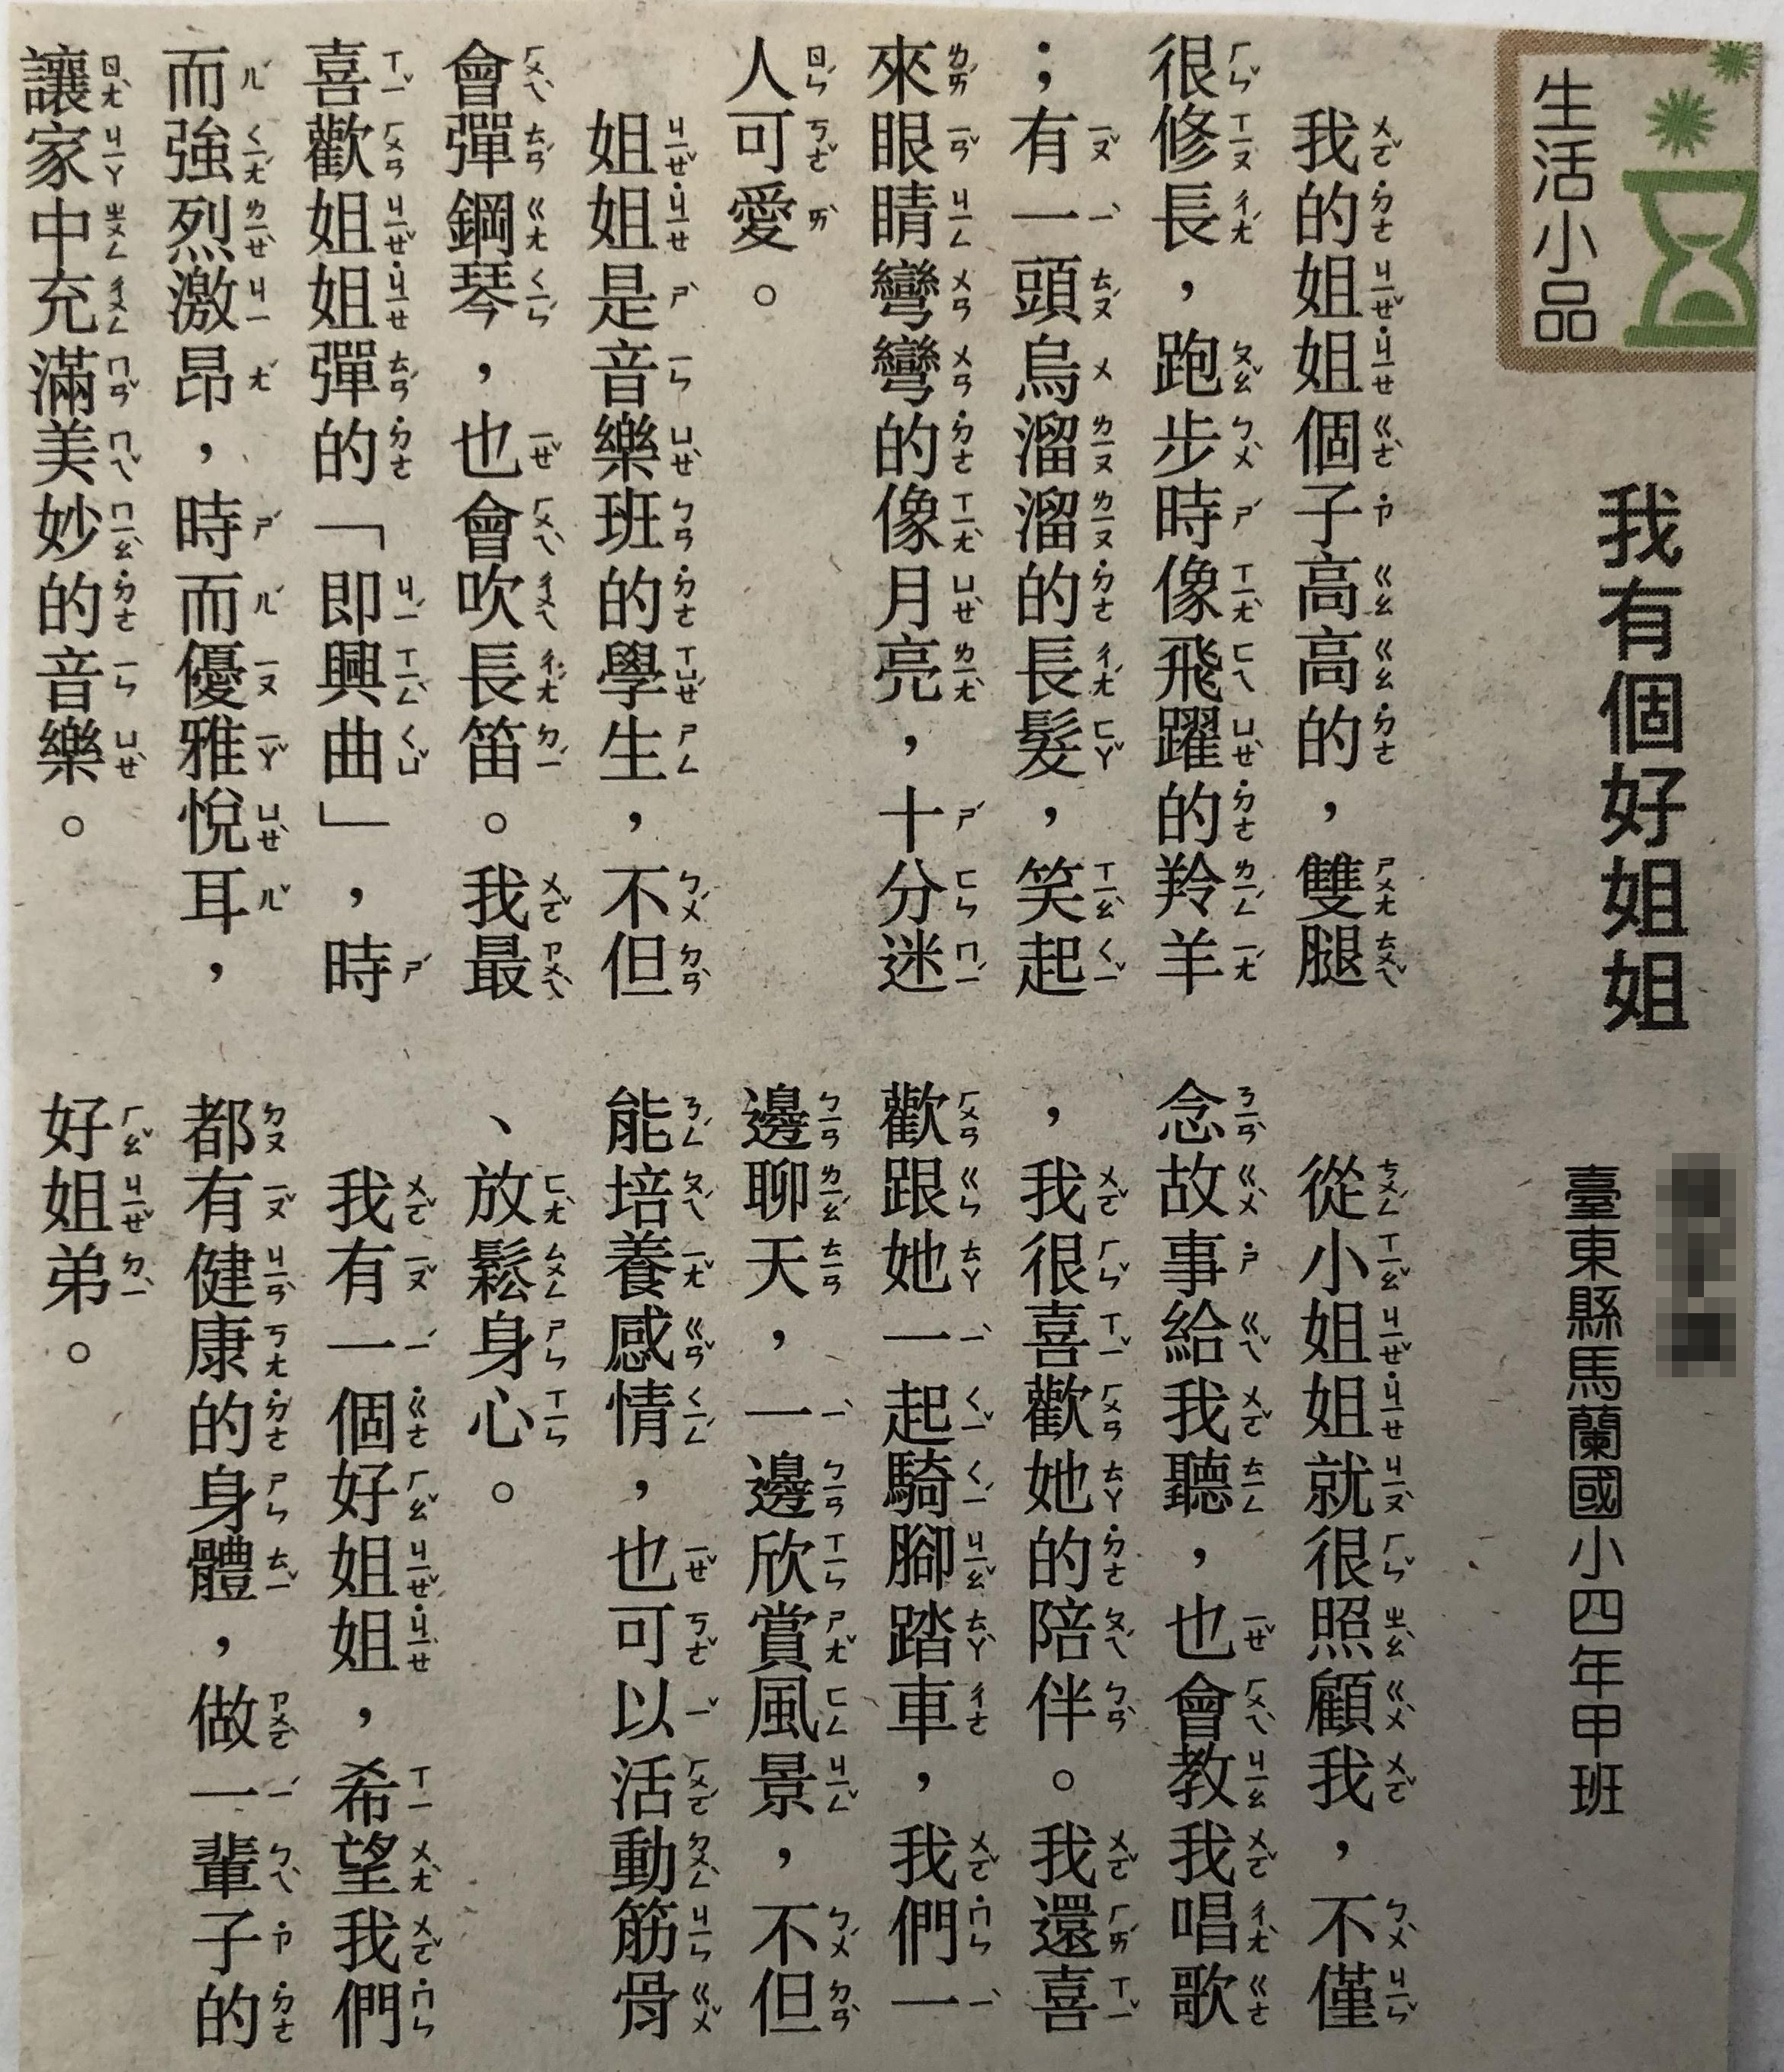 生活小品
我有個好姐姐
臺東縣馬蘭國小四年甲班
我的姐姐個子高高的，雙腿
很修長，跑步時像飛躍的羚羊
；有一頭烏溜溜的長髮，笑起
來眼睛彎彎的像月亮，十分迷
人可愛。
姐姐是音樂班的學生，不但
會彈鋼琴，也會吹長笛。我最
喜歡姐姐彈的「即興曲」，時
而強烈激昂，時而優雅悅耳，
讓家中充滿美妙的音樂。
從小姐姐就很照顧我，不僅
念故事給我聽，也會教我唱歌
，我很喜歡她的陪伴。我還喜
歡跟她一起騎腳踏車，我們一
邊聊天，一邊欣賞風景，不但
能培養感情，也可以活動筋骨
、放鬆身心。
我有一個好姐姐，希望我們
都有健康的身體，做一輩子的
好姐弟。